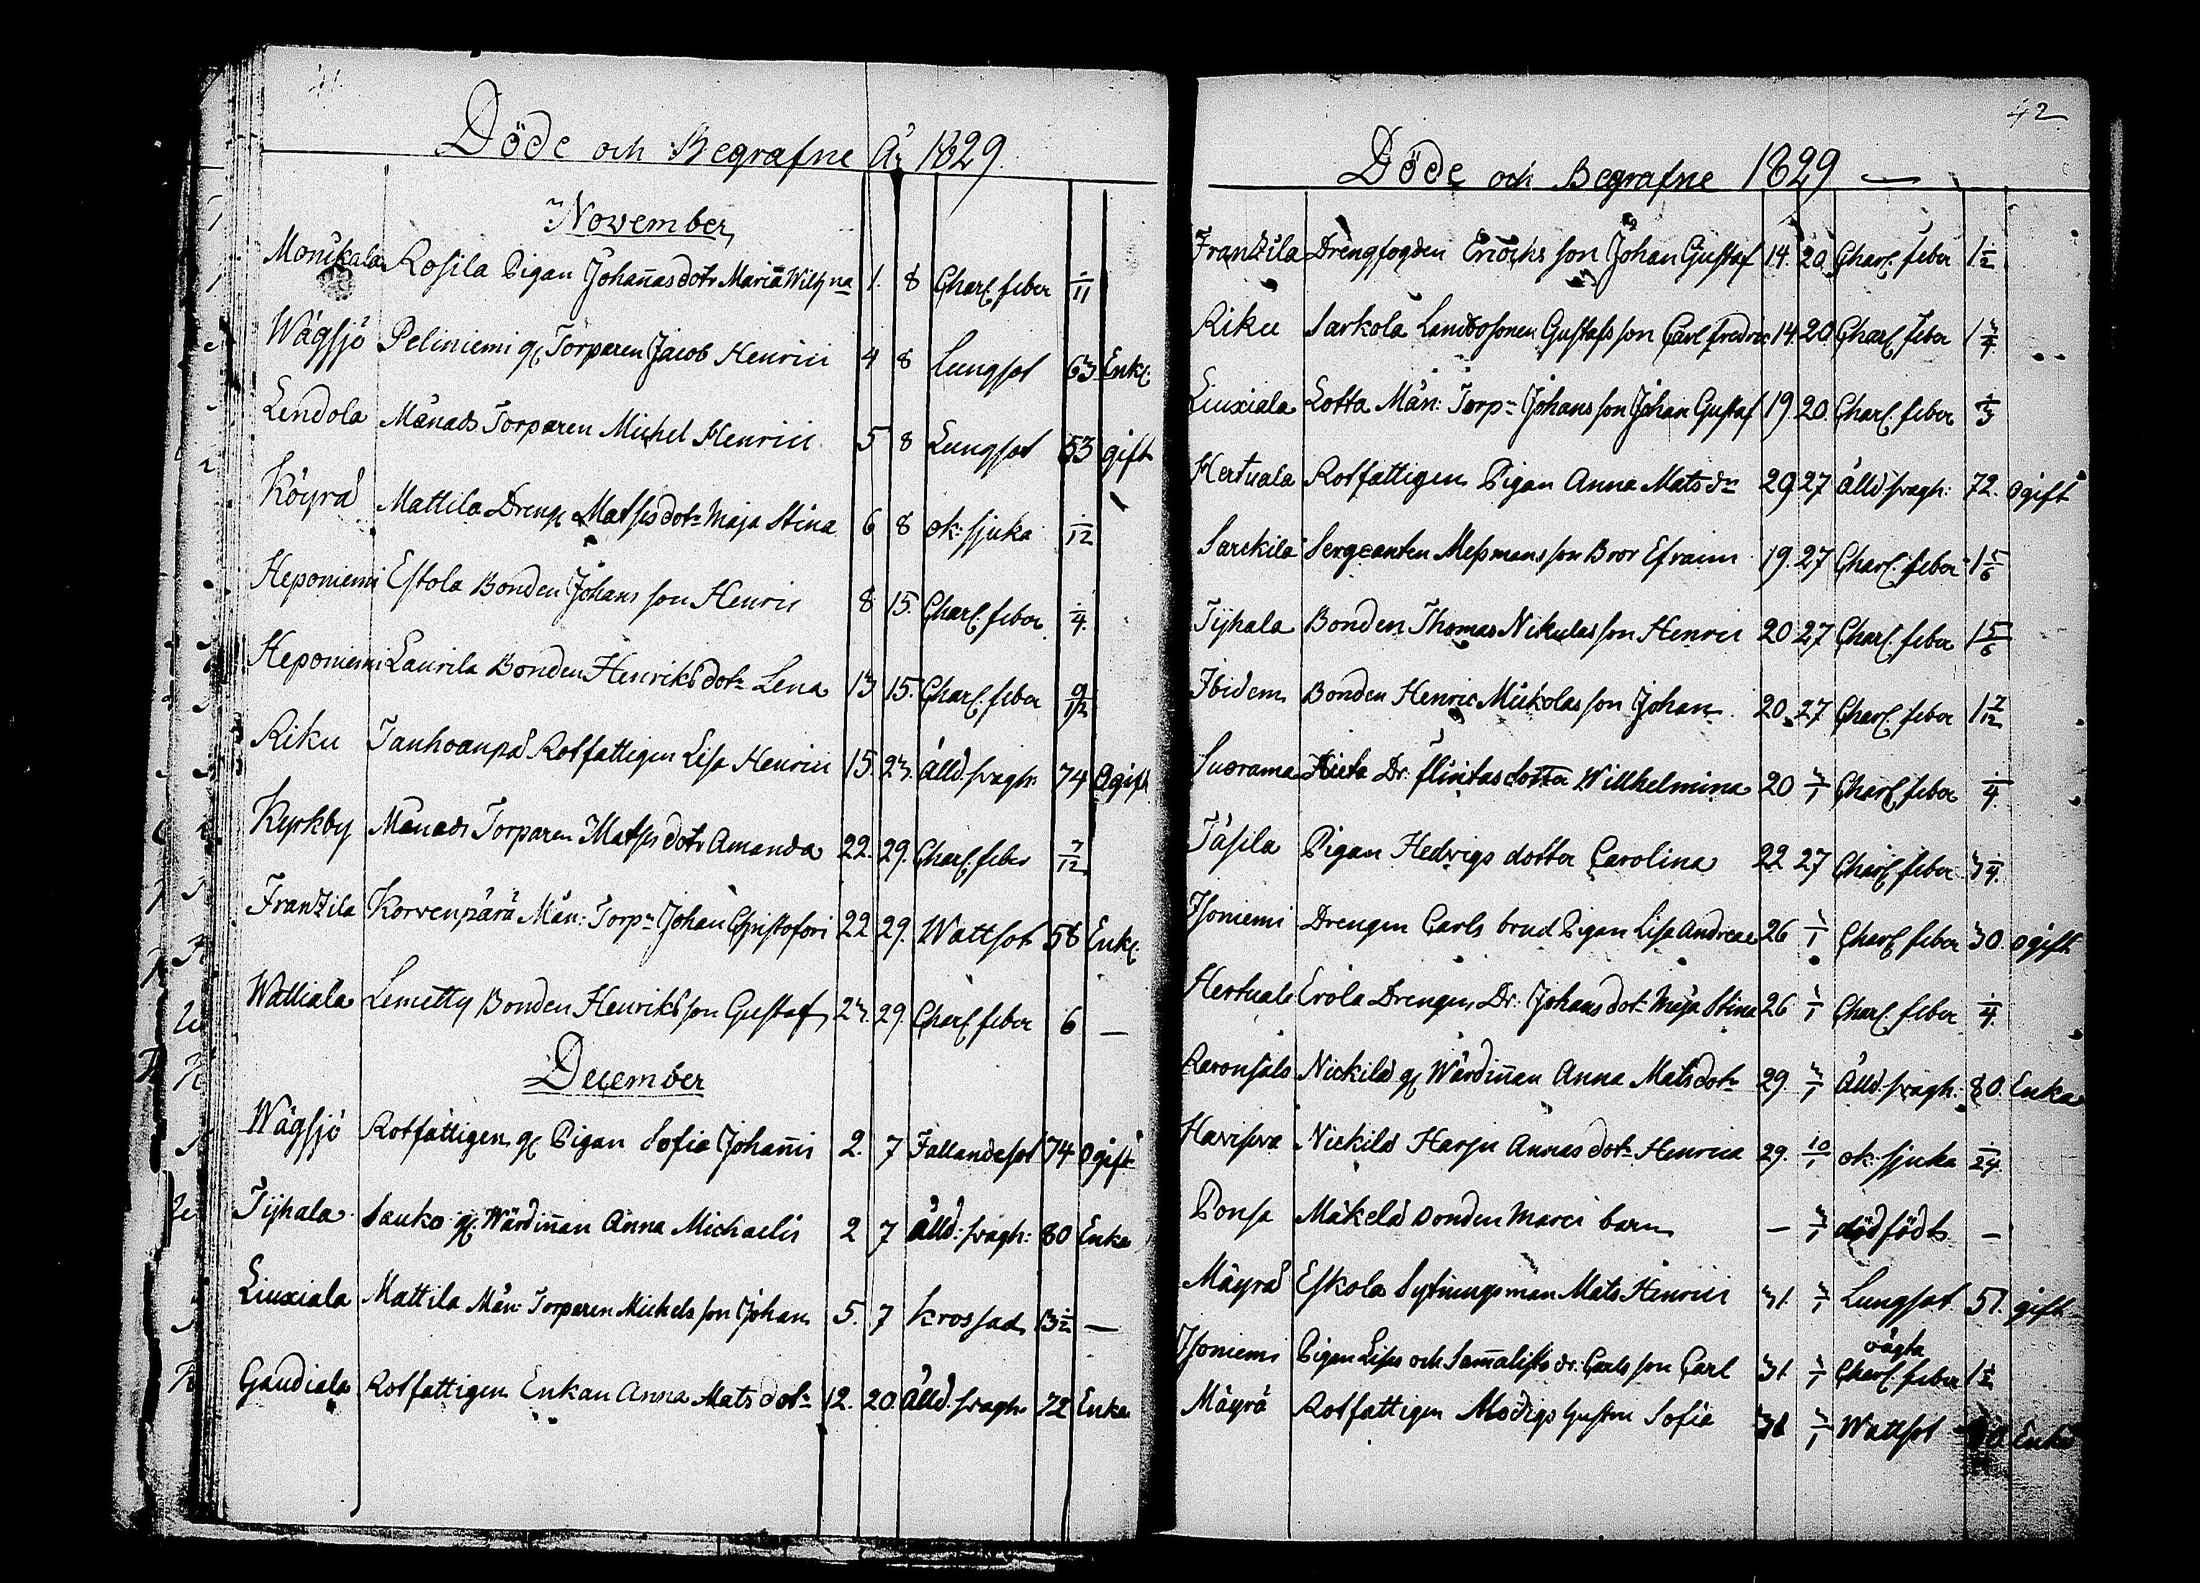 41.
Döde och Begrafne År 1829.
November
Monikala Rosila Pigan Johañas dotr Maria Wilhna 1. 8 Charl. feber 1/11
Wägsjö Peliniemi gl Torparen Jacob Henrici 4 8 Lungsot 63 Enkl.
Lendola Månads Torparen Michel Henrici 5 8 Lungsot 53 gift
Köyrä Mattila Dreng Matses dotr Maja Stina 6 8 ok: sjuka 1/12
Heponiemi Estola Bonden Johans son Henric 8 15. Charl. feber 1/4.
Heponiemi Laurila Bonden Henriks dotr Lena 13 15. Charl. feber 9/12
Riku Tanhoanpä Rotfattigen Lisa Henrici 15. 23. Ålld. svagh. 74 Ogift
Kyrkby Månads Torparen Matses dotr Amanda 22. 29. Charl. feber 7/12
Frantzila Korvenpärä Mån: Torpn Johan Christofori 22 29. Wattsot 58 Enkl.
Walliala Lemetty Bonden Henriks son Gustaf 23. 29. Charl. feber 6 —
December
Wägsjö Rotfattigen gl Pigan Sofia Johañis 2. 7 Fallandesot 74 Ogift
Tyhala Sauko gl. Wärdiñan Anna Michaelis 2 7 Ålld: svagh: 80 Enka
Liuxiala Mattila Mån: Torparen Michels son Johan 5. 7 Krossad 13 1/2 —
Gaudiala Rotfattigen Enkan Anna Mats dotr 12. 20. Ålld. svagh. 72 Enka
42.
Döde och Begrafne 1829 —
Frantzila Drengfogden Eriocks son Johan Gustaf 14. 20. Charl. feber 1 1/2
Riku Sarkola Landbosonen Gustafs son Carl Fredric 14. 20 Charl. feber 1 3/4.
Liuxiala Lotta Mån: Torpn Johans son Johan Gustaf 19. 20. Charl. feber 1/3
Hertuala Rotfattigen Pigan Anna Mats dr 29 27 Ålld svagh: 72. Ogift
Sarckila Sergeanten Messmans son Bror Efraim 19. 27 Charl. feber 1 5/6
Tyhala Bonden Thomas Nikulas son Henric 20 27 Charl. feber 1 5/6
Ibidem Bonden Henric Mickolas son Johan 20. 27 Charl. feber 1 7/12
Suorama Dr: dotter Willhelmina 20 3/1 Charl. feber 1/4.
Täsila Pigan Hedvigs dotter Carolina 22 27 Charl. feber 3 1/4.
Isoniemi Drengen Carls brud Pigan Lisa Andreæ 26 1/1 Charl. feber 30. ogift
Hertuala Erola Drengen Dr: Johans dotr Maja Stina 26 1/1 Charl. feber 1/4.
Aaronsals Nickilä gl Wärdiñan Anna Mats dotr 29. 3/1 Ålld. svagh: 80. Enka
Havisiva Nickilä Harju Annas dotr Henrica 29. 10/1 ok: sjuka 1/24.
Ponsa Mäkelä Bonden Marci barn — 3/1 dödfödt —
Mäyrä Eskola Sytningsman Mats Henrici 31. 3/1 Lungsot 51. gift
oägta
Isoniemi Pigan Lisas och Sam̃alists dr: Carls son Carl 31. 1/1 Charl. feber 1 1/2
Mäyrä Rotfattigen Modigs hustru Sofia 31 3/1 Wattsot Enka